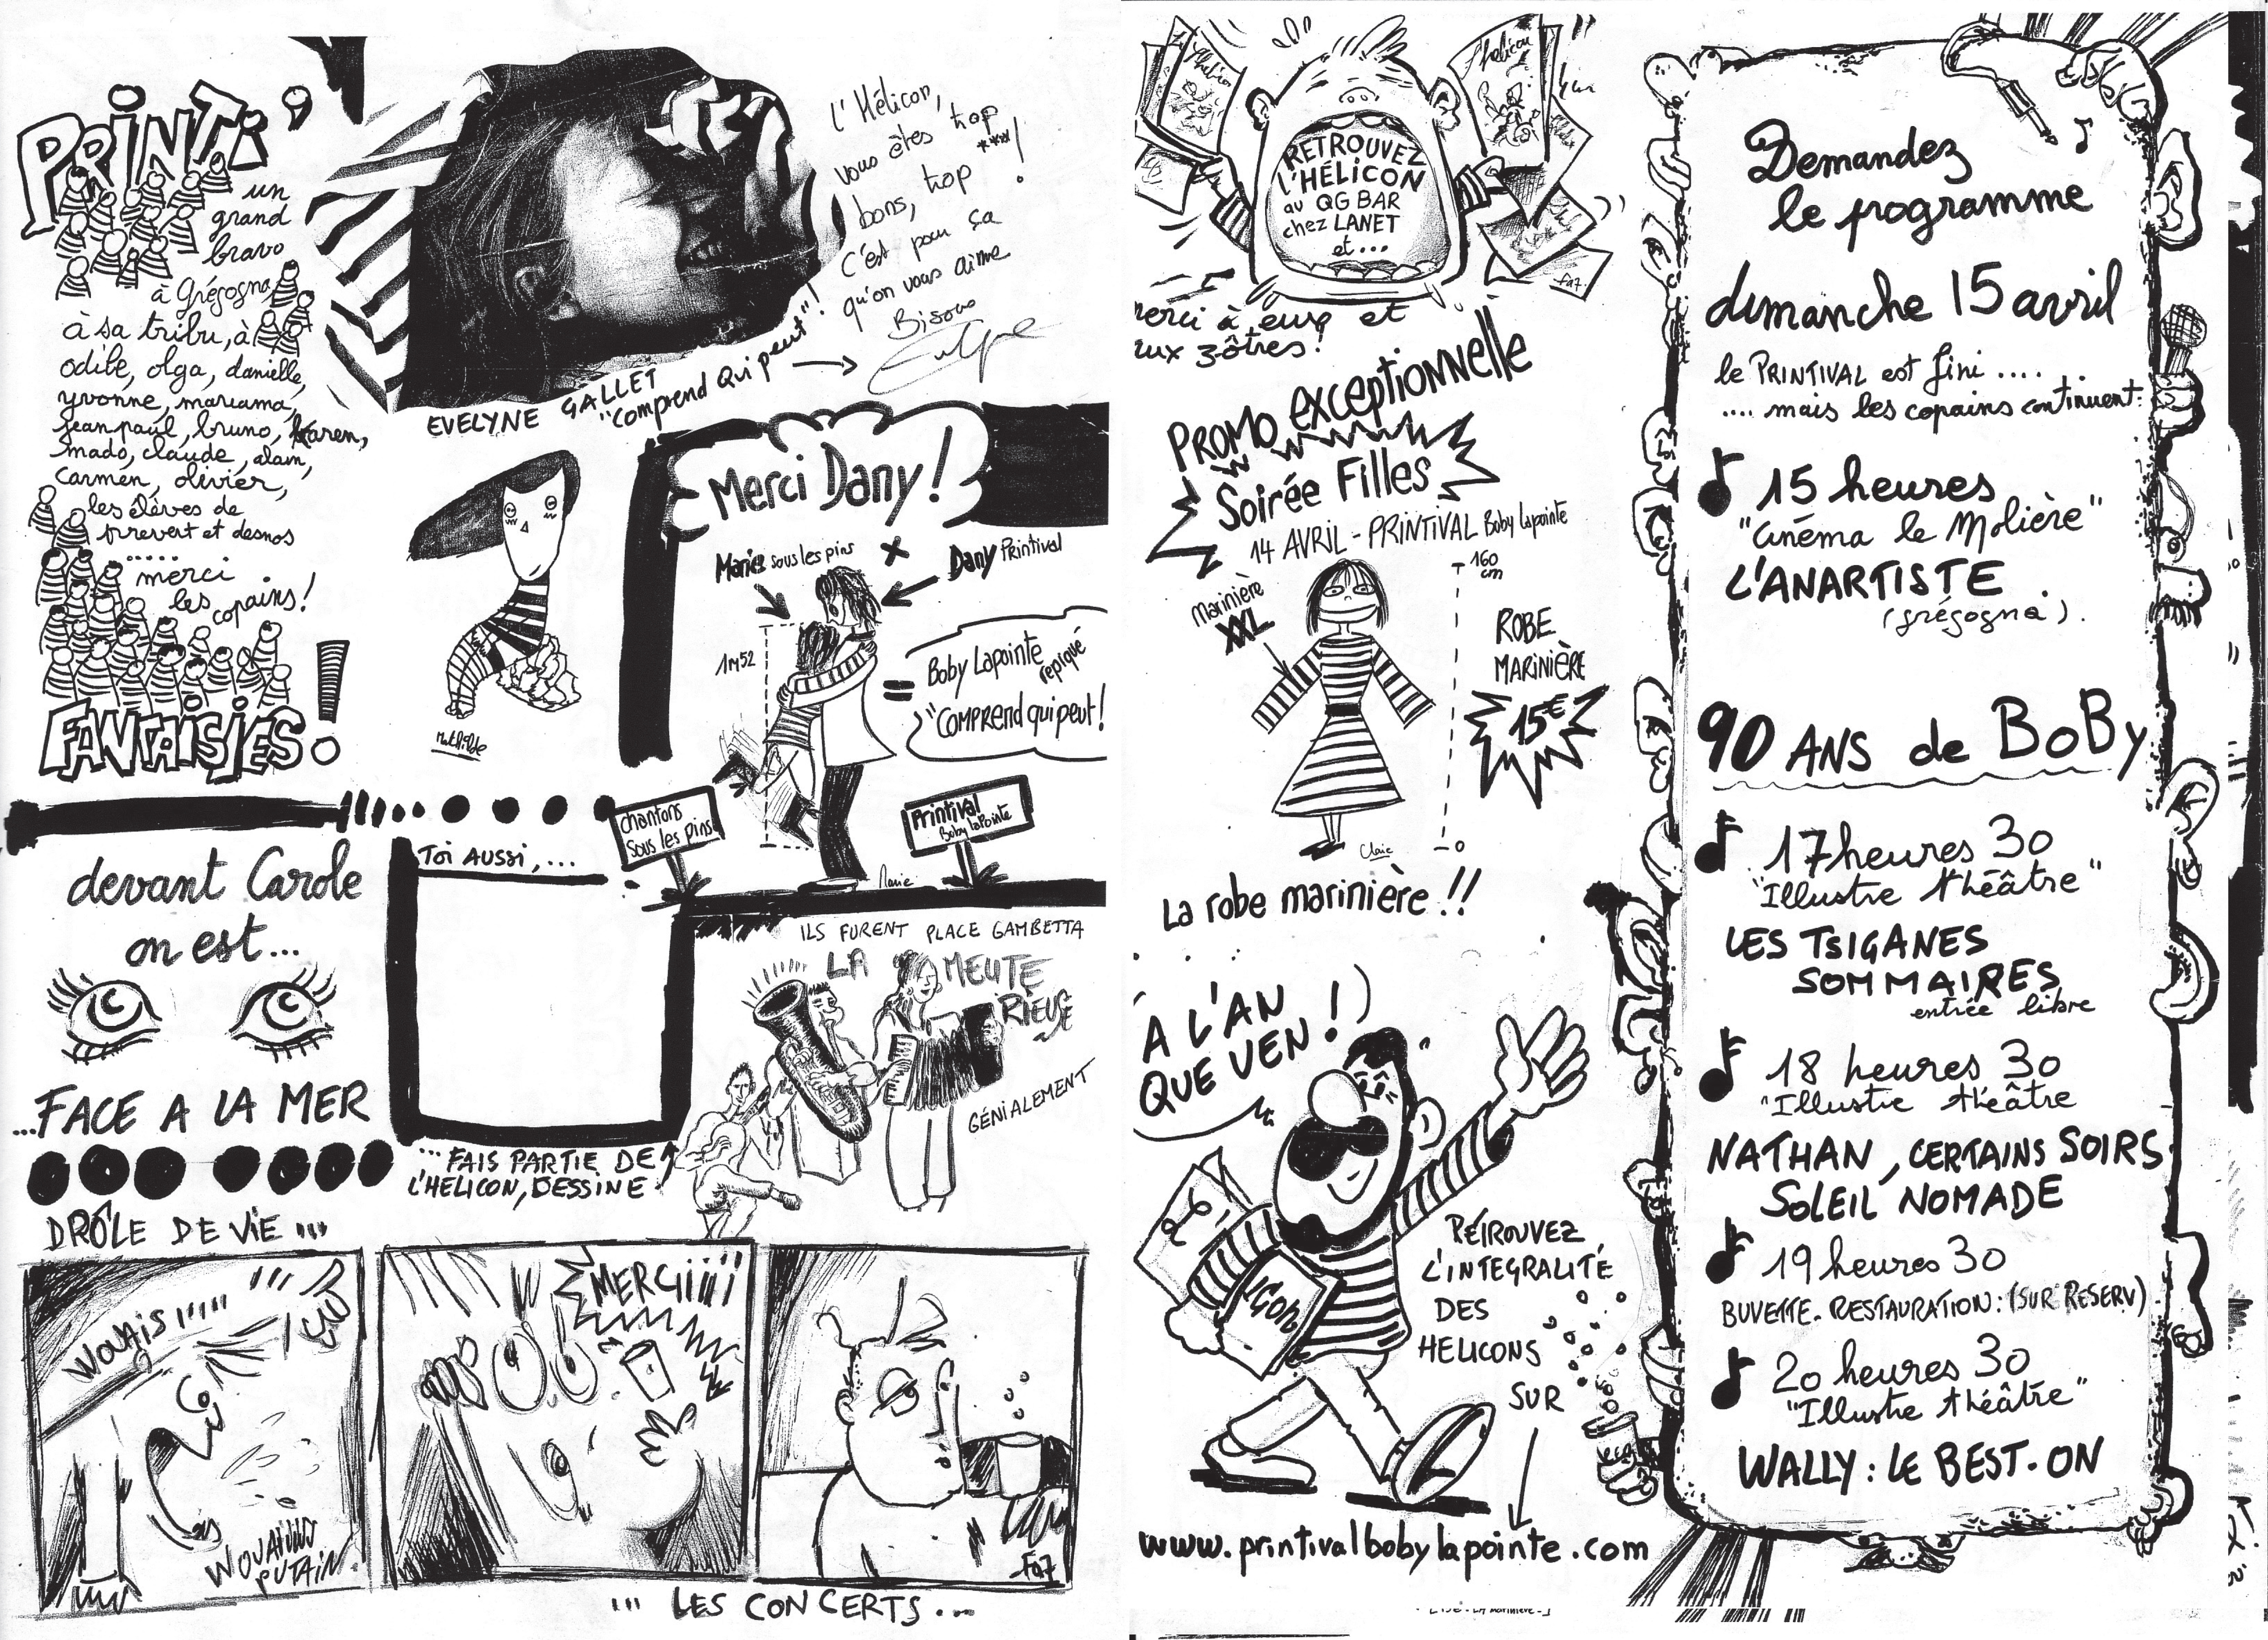 PRINTi'
un
grand
bravo
à Grégogna
à sa tribu, à
odile, olga, danielle,
yvonne, mariama,
jean paul, bruno, Karen,
mado, claude, alain,
carmen, olivier,
les élèves de
prevert et desnos
.....
merci
les
copains!
FANTAISIES!
l'Hélicon,
vous êtes trop
bons, trop ****!
C'est pour ça
qu'on vous aime
Bisous
EVELYNE GALLET
"Comprend Qui peut"!
Mathilde
Merci Dany!
Marie sous les pins X Dany Printival
1m52
= Boby Lapointe
repiqué
"Comprend qui peut!
chantons
sous les pins
Printival
Boby lapointe
Marie
devant Carole
on est...
...FACE A LA MER
Toi AUSSi,...
...FAIS PARTIE DE
L'HELICON, DESSINE
ILS FURENT PLACE GAMBETTA
LA MEUTE
RIEUSE
GÉNIALEMENT
DRÔLE DE ViE '''
WOUAIS !''''
PUTAIN
MERCiiiii
Fa7
''' LES CONCERTS...
l'helicon
RETROUVEZ
L'HÉLICON
au QG BAR
chez LANET
et...
Fa7
merci à eux et
aux zôtres!
PROMO exceptionnelle
Soirée Filles
14 AVRIL - PRINTIVAL Boby lapointe
Marinière
XXL
160
cm
ROBE
MARINIÈRE
15€
0
Claire
La robe marinière!!
A L'AN
QUE VEN!
L'IGON
RETROUVEZ
L'INTEGRALITÉ
DES
HELICONS
SUR
www.printivalbobylapointe.com
Demandez
le programme
dimanche 15 avril
le PRINTIVAL est fini ....
.... mais les copains continuent:
15 heures
"cinéma le Molière"
L'ANARTISTE
(grégogna).
90 ANS de BoBy
17 heures 30
"Illustre théâtre"
LES TSIGANES
SOMMAIRES
entrée libre
18 heures 30
"Illustre théâtre
NATHAN, CERTAINS SOIRS
SOLEIL NOMADE
19 heures 30
BUVETTE. RESTAURATION: (SUR RESERV)
20 heures 30
"Illustre théâtre"
WALLY : LE BEST-ON